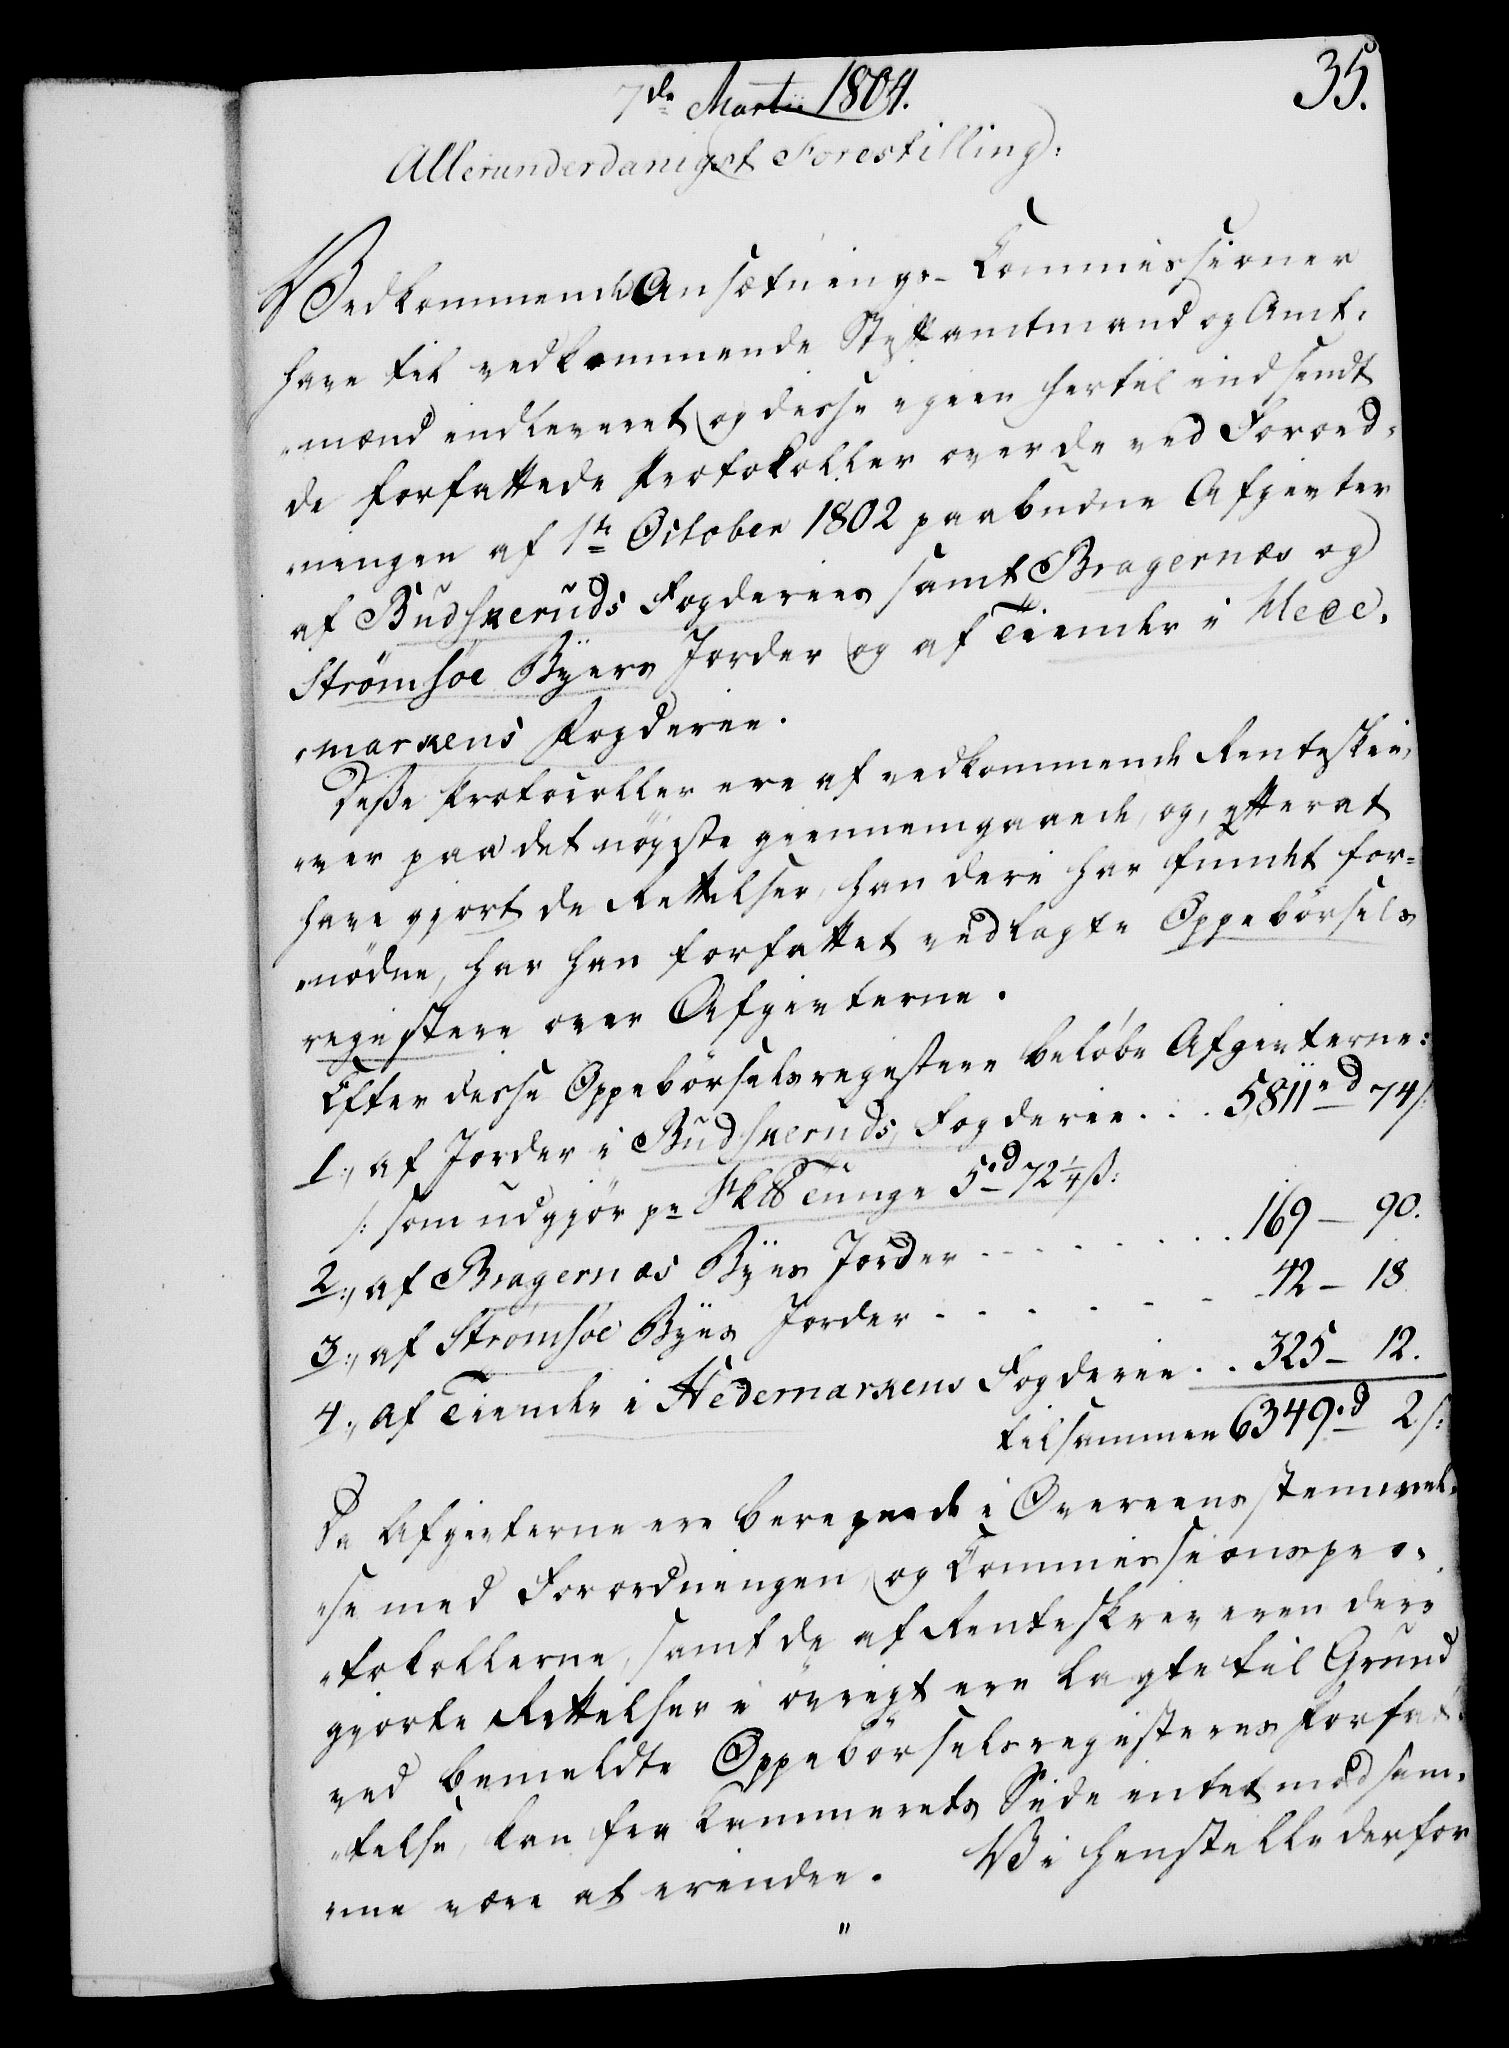 7de Martii 1804.
35.
Allerunderdanigst Forestilling:
Vedkommende Ansætnings-Commissioner
have til vedkommende Stiftamtmand og Amt-
mænd indleveret og disse igien hertil indsendt
de forfattede Protokoller over de ved Forord-
ningen af 1te October 1802 paabudne Afgivter
af Budskeruds Fogderies samt Bragernæs og
Strømsøe Byers Jorder og af Tiender i Hede-
markens Fogderie.
Disse Protocoller ere af vedkommende Renteskri-
ver paa det nøyeste giennemgaaede, og, efter at
have gjort de Rettelser, han deri har fundet for-
nødne, har han forfattet vedlagte Oppebørsels
registere over Afgivterne.
Efter disse Oppebørselsregistere beløbe Afgivterne:
1:, af Jorder i Budskeruds Fogderie . . . 5811rd 74s:
/: som udgjør pr Sk℔ Tunge 5rd 72¼ß:
2:, af Bragernæs Byes Jorder - - - - - - 169 - 90.
3:, af Strømsøe Byes Jorder - - - - - - 42 - 18
4:, af Tiender i Hedemarkens Fogderie . . 325 - 12.
tilsammen 6349rd 2s:
Da Afgivterne ere beregnede i Overeensstemmel-
se med Forordningen, og Commissionspro-
tokollerne, samt de af Renteskriveren deri
giorte Rettelser i øvrigt ere lagte til Grund
ved bemeldte Oppebørselsregisteres Forfat-
telse, kan fra Kammerets Side intet mod sam-
me være at erindre. Vi henstille derfor
"